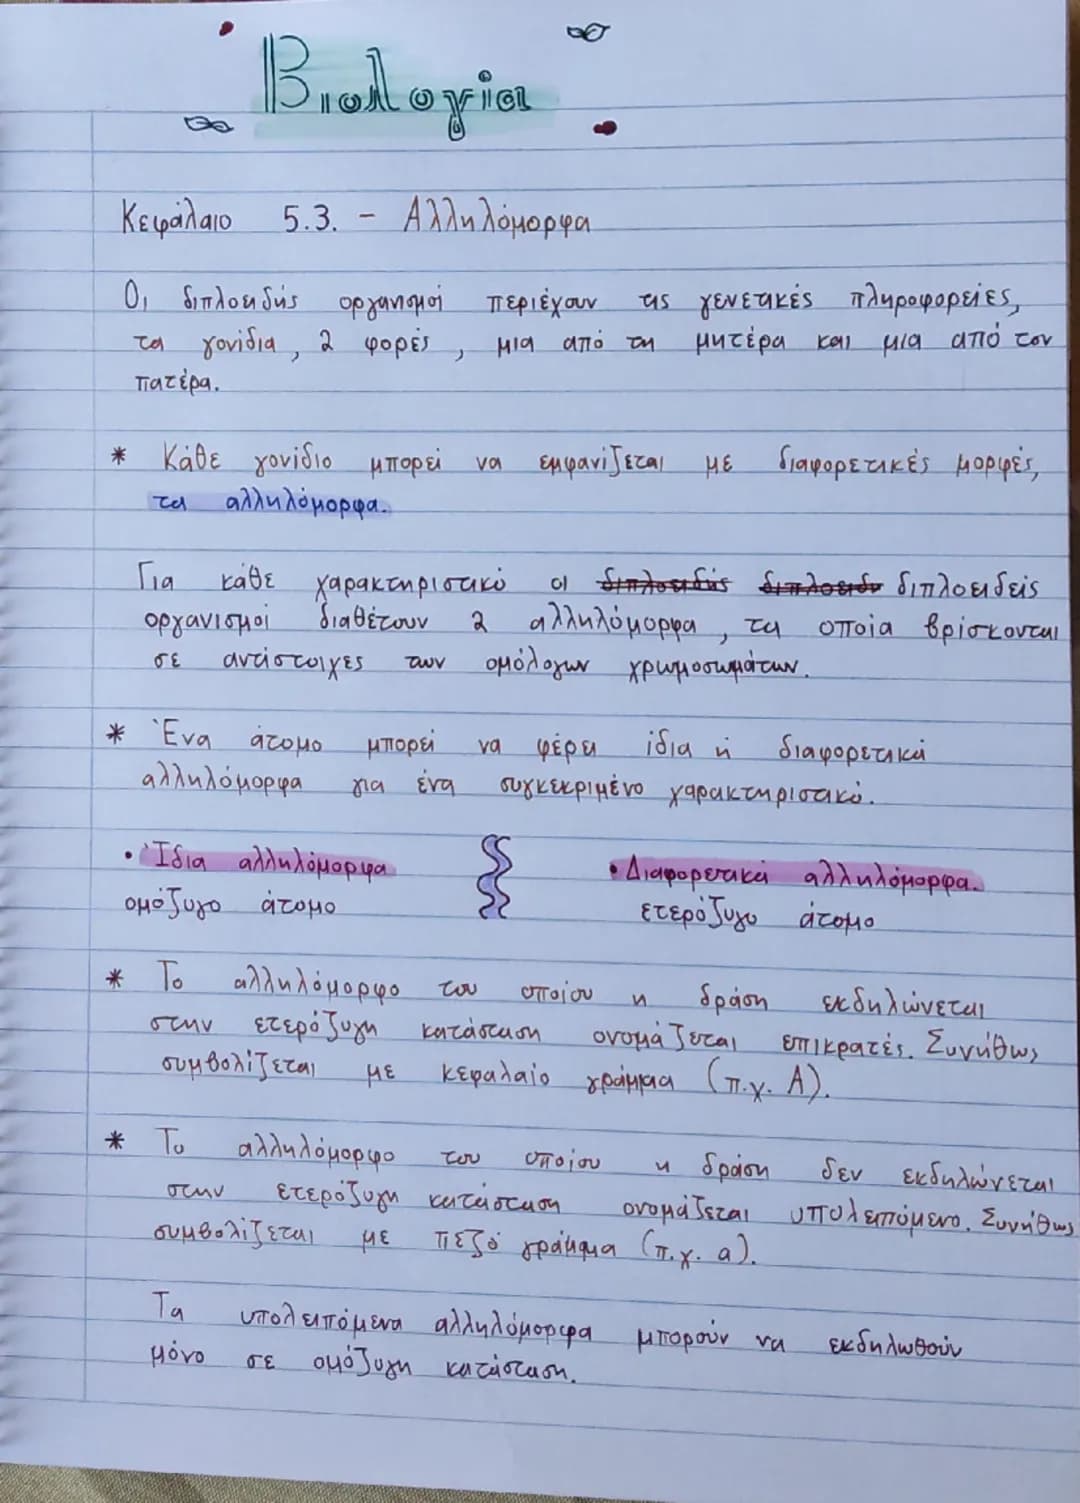 Βιολογία
Κεφάλαιο 5.3. - Αλληλόμορφα
Οι διπλοειδής οργανισμοί περιέχουν τις γενετικές πληροφορείες,
τα γονίδια, 2 φορές, μια από τη μητέρα και μια από τον
πατέρα.
* Κάθε γονίδιο μπορεί να εμφανίζεται με διαφορετικές μορφές,
τα αλληλόμορφα.
Για κάθε χαρακτηριστικό οι διπλοειδής διπλοειδυ διπλοειδείς
οργανισμοί διαθέτουν 2 αλληλόμορφα, τα οποία βρίσκονται
σε αντίστοιχες των ομόλογων χρωμοσωμάτων.
* Ένα άτομο μπορεί να φέρει ίδια ή διαφορετικά
αλληλόμορφα για ένα συγκεκριμένο χαρακτηριστικό.
• Ίδια αλληλόμορφα
ομόζυγο άτομο
• Διαφορετικά αλληλόμορφα.
ετερόζυγο άτομο
* Το αλληλόμορφο του οποίου η δράση εκδηλώνεται
στην ετερόζυγη κατάσταση ονομάζεται επικρατές. Συνήθως
συμβολίζεται με κεφαλαίο γράμμα (π.χ. Α).
* Το αλληλόμορφο του οποίου η δράση δεν εκδηλώνεται
στην ετερόζυγη κατάσταση ονομάζεται υπολειπόμενο. Συνήθως
συμβολίζεται με πεζό γράμμα (π.χ. α).
Τα υπολειπόμενα αλληλόμορφα μπορούν να εκδηλωθούν
μόνο σε ομόζυγη κατάσταση.